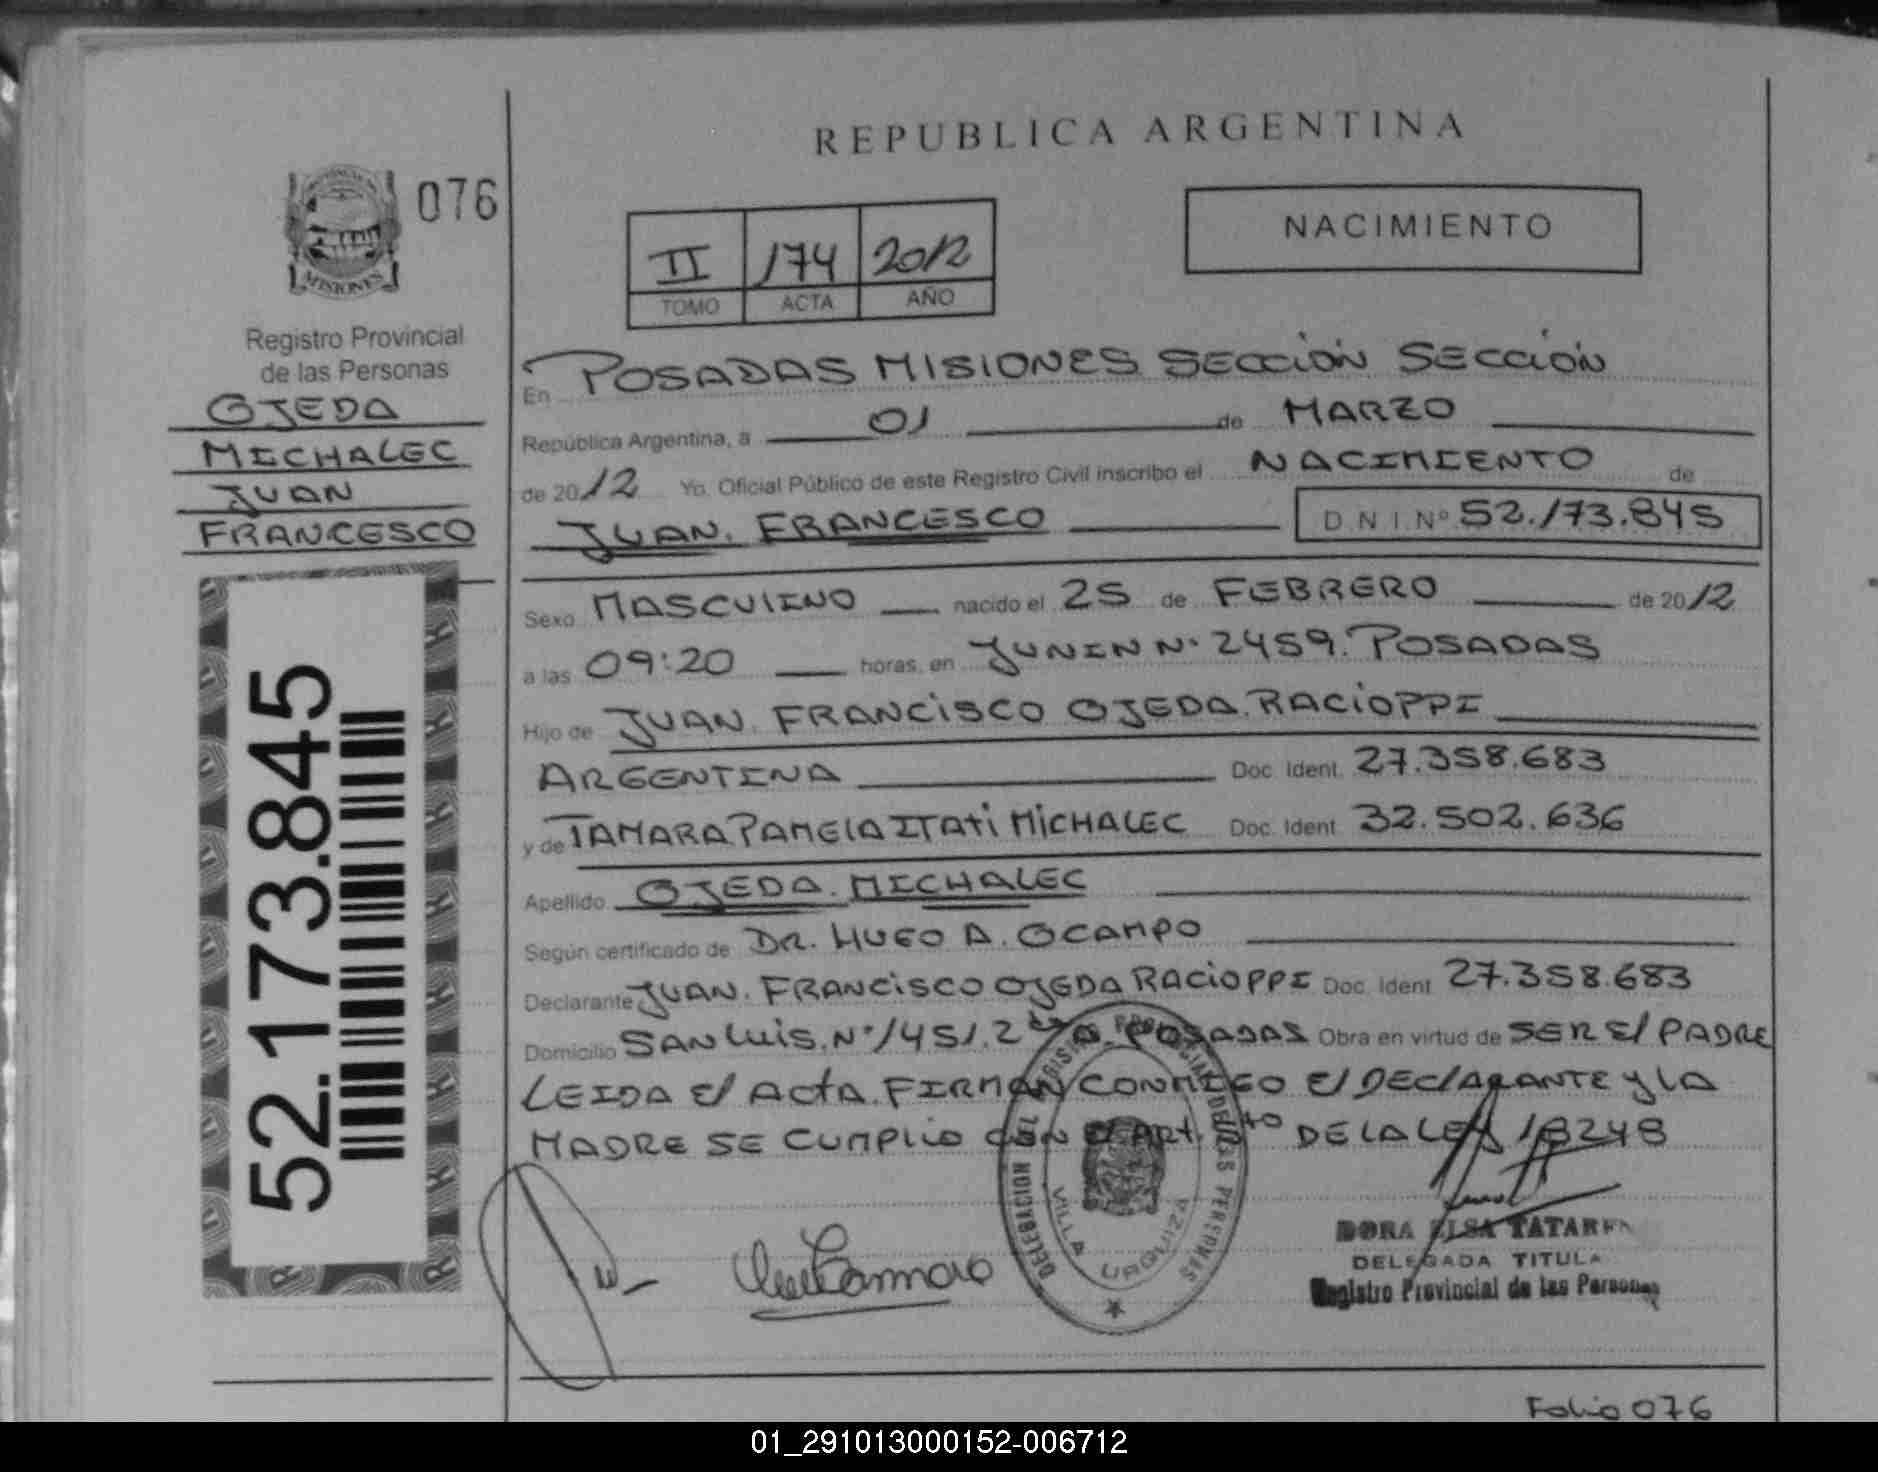 REPUBLICA ARGENTINA
076
MISIONES
Registro Provincial
de las Personas
OJEDA
MICHALEC
JUAN
FRANCESCO
52.173.845
II 174 2012
TOMO ACTA AÑO
NACIMIENTO
En POSADAS MISIONES SECCIÓN SECCIÓN
República Argentina, a 01 de MARZO
de 2012 Yo, Oficial Público de este Registro Civil inscribo el NACIMIENTO de
JUAN. FRANCESCO D N I. Nº 52.173.845
Sexo MASCULINO nacido el 25 de FEBRERO de 2012
a las 09:20 horas, en JUNIN Nº 2459. POSADAS
Hijo de JUAN. FRANCISCO OJEDA. RACIOPPI
ARGENTINA Doc. Ident. 27.358.683
y de TAMARA PAMELA ITATI MICHALEC Doc. Ident. 32.502.636
Apellido OJEDA. MICHALEC
Según certificado de DR. HUGO A. OCAMPO
Declarante JUAN. FRANCISCO OJEDA RACIOPPI Doc. Ident. 27.358.683
Domicilio SAN LUIS. Nº 1451. 2 POSADAS Obra en virtud de SER El PADRE
LEIDA El ACTA. FIRMAN CONMIGO El DEClARANTE y LA
MADRE SE CUMPLIO CON El ART. DE LA LEY 18248
DELEGACION DEL REGISTRO PROVINCIAL DE LAS PERSONAS
VILLA URQUIZA
DORA ELSA
DELEGADA TITULA
Registro Provincial de las Personas
Folio 076
01_291013000152-006712